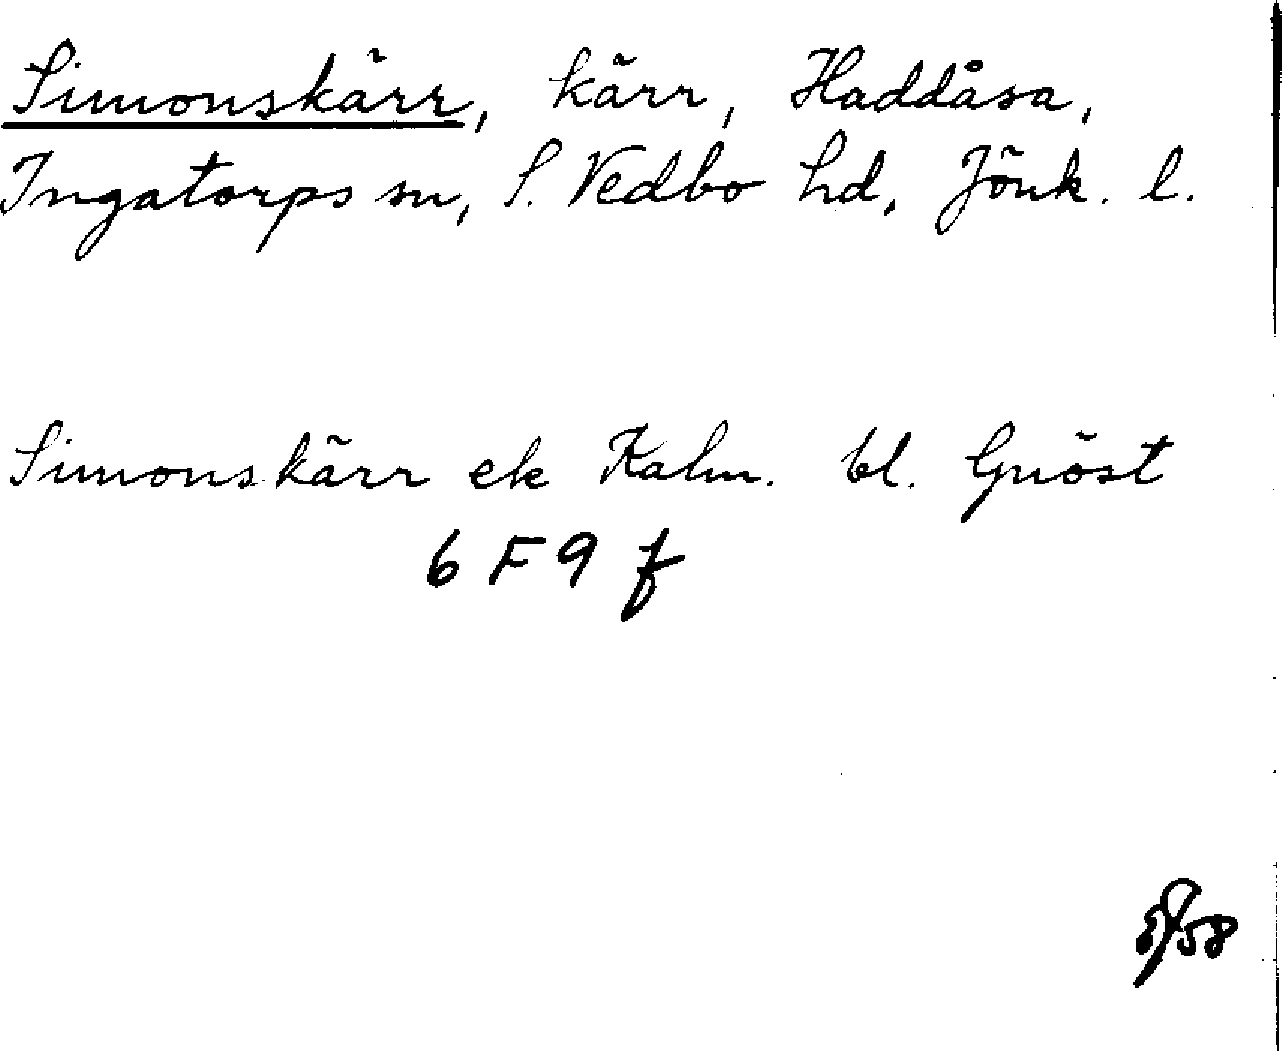 Simonskärr, kärr, Haddåsa,
Ingatorps sn, S. Vedbo hd, Jönk. l.
Simonskärr ek Kalm. bl. Gnöst
6 F 9 f